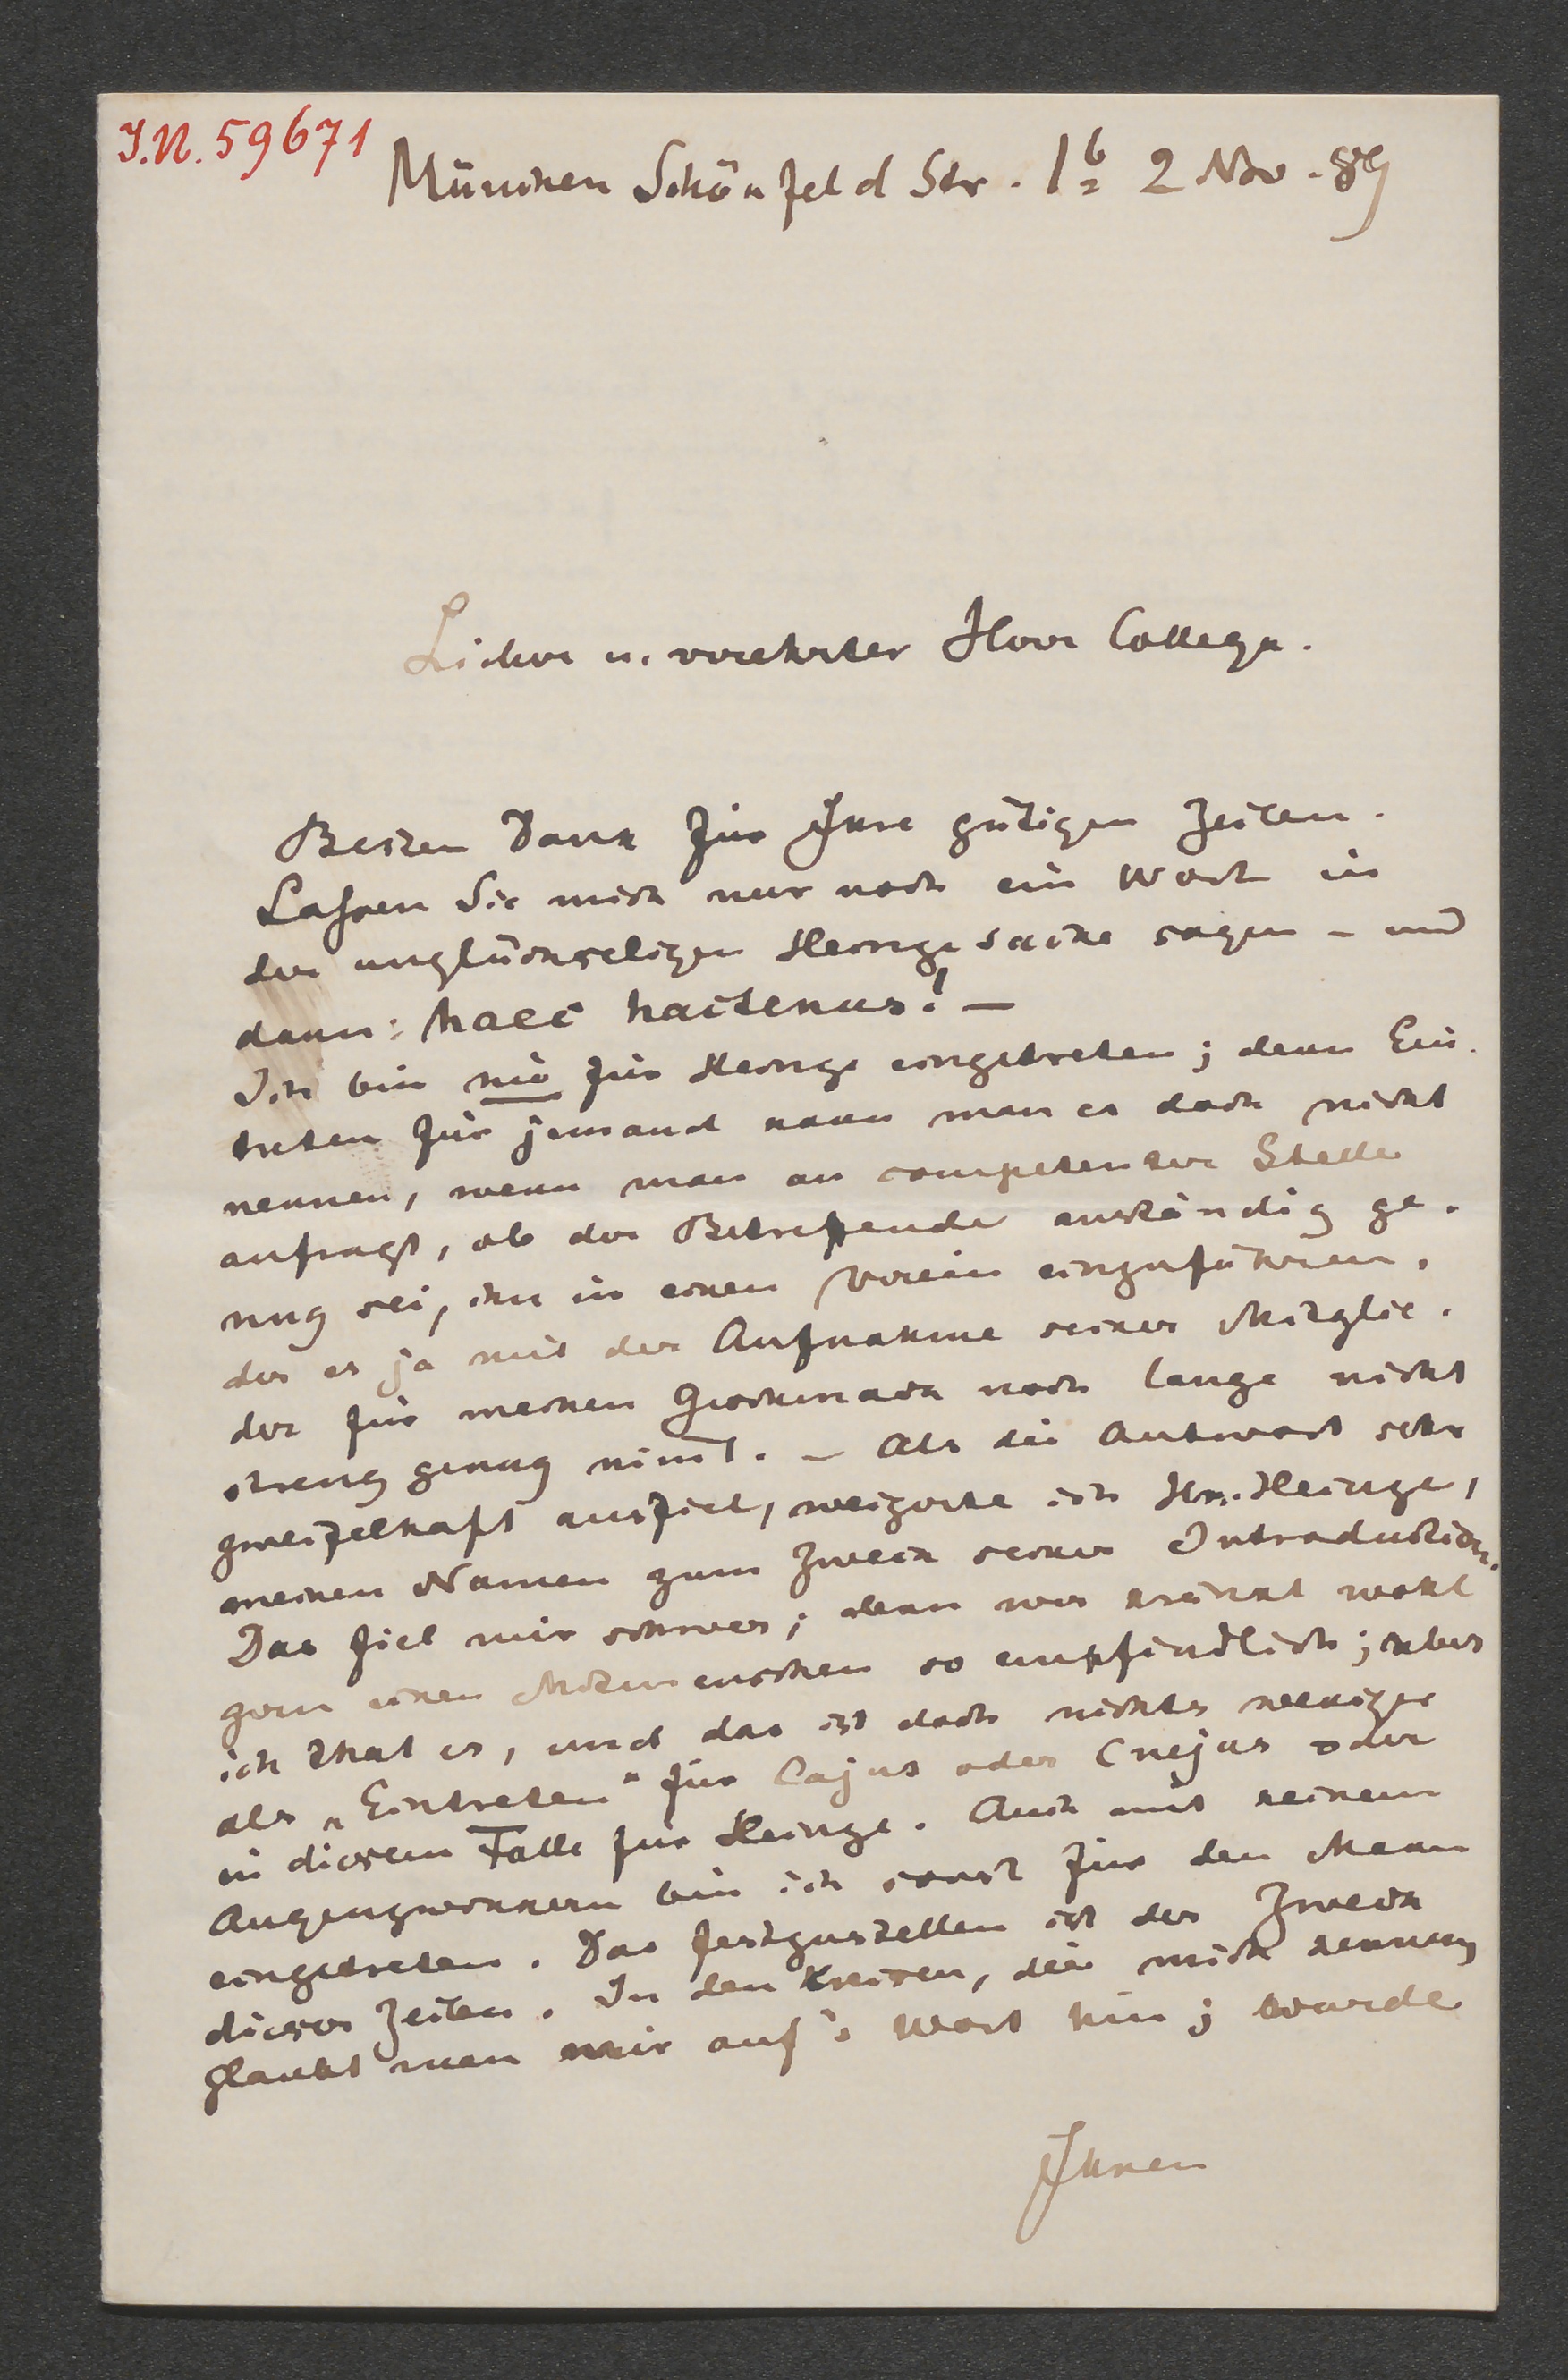 I.N. 59671
München Schönfeld Str. 1b 2 Nov. 89
Lieber u. verehrter Herr College.
Besten Dank für Ihre gütigen Zeilen.
Laßen Sie mich nur noch ein Wort in
der unglückseligen Heinzesache sagen – und
dann: haec hactenus! –
Ich bin nie für Heinze eingetreten; denn Ein-
treten für jemand kann man es doch nicht
nennen, wenn man an competenter Stelle
anfragt, ob der Betreffende anständig ge-
nug sei, ihn in einen Verein einzuführen,
der es ja mit der Aufnahme seiner Mitglie-
der für meinen Geschmack noch lange nicht
streng genug nimt. – Als die Antwort sehr
zweifelhaft ausfiel, weigerte ich Hrn. Heinze,
meinen Namen zum Zweck seiner Introduction.
Das fiel mir schwer; denn wer kränkt wohl
gern einen Mitmenschen so empfindlich; aber
ich that es, und das ist doch nichts weniger
als „Eintreten" für Cajus oder Cnejus oder
in diesem Falle für Heinze. Auch mit keinem
Augenzwinkern bin ich sonst für den Mann
eingetreten. Das festzustellen ist der Zweck
dieser Zeilen. In den Kreisen, die mich kennen,
glaubt man mir auf's Wort hin; wurde
Ihnen